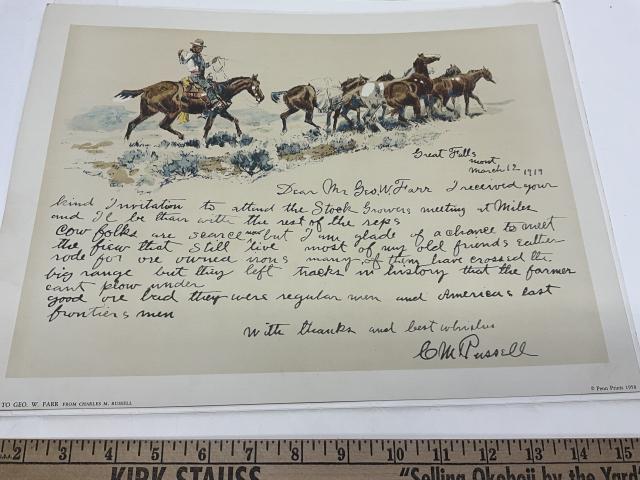 Great Falls
Mont
March 12 1919
Dear Mr Geo. W. Farr I received your
kind Invitation to attend the Stock Growers meeting at Miles
and Il be thair with the rest of the reps
Cow folks are scarce now but I am glade of a chance to meet
the fiew that Still live most of my old friends eather
rode for ore owned irons many of them have crossed the
big range but they left tracks in history that the farmer
cant plow under
good ore bad they were regular men and Americas last
frontiers men
With thanks and best whishes
C M Russell
TO GEO. W. FARR FROM CHARLES M. RUSSELL
© Penn Prints 1958
2 3 4 5 6 7 8 9 10 11 12 13 14 15
KIRK STAUSS "Selling Okoboji by the Yard"